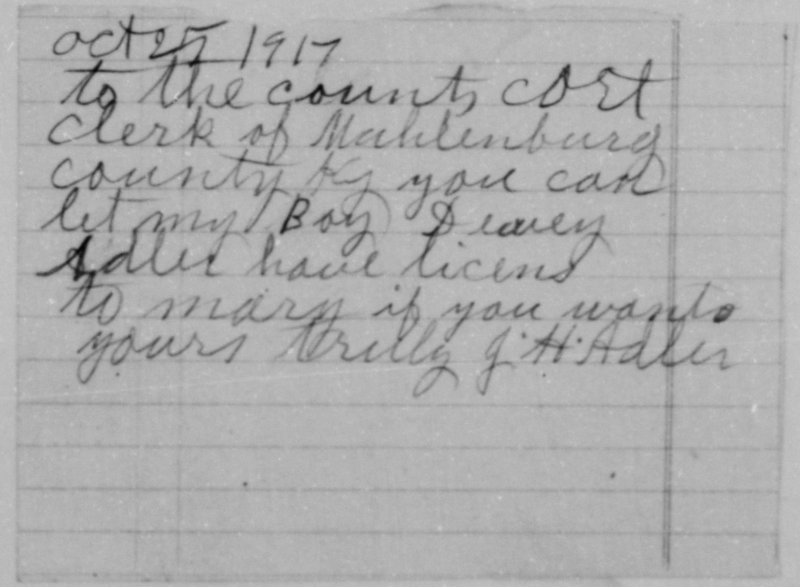 oct 25 1917
to the county cort
clerk of Muhlenburg
county Ky you can
let my Boy Dewey
Adler have licens
to mary if you wants
yours trilly J. H. Adler